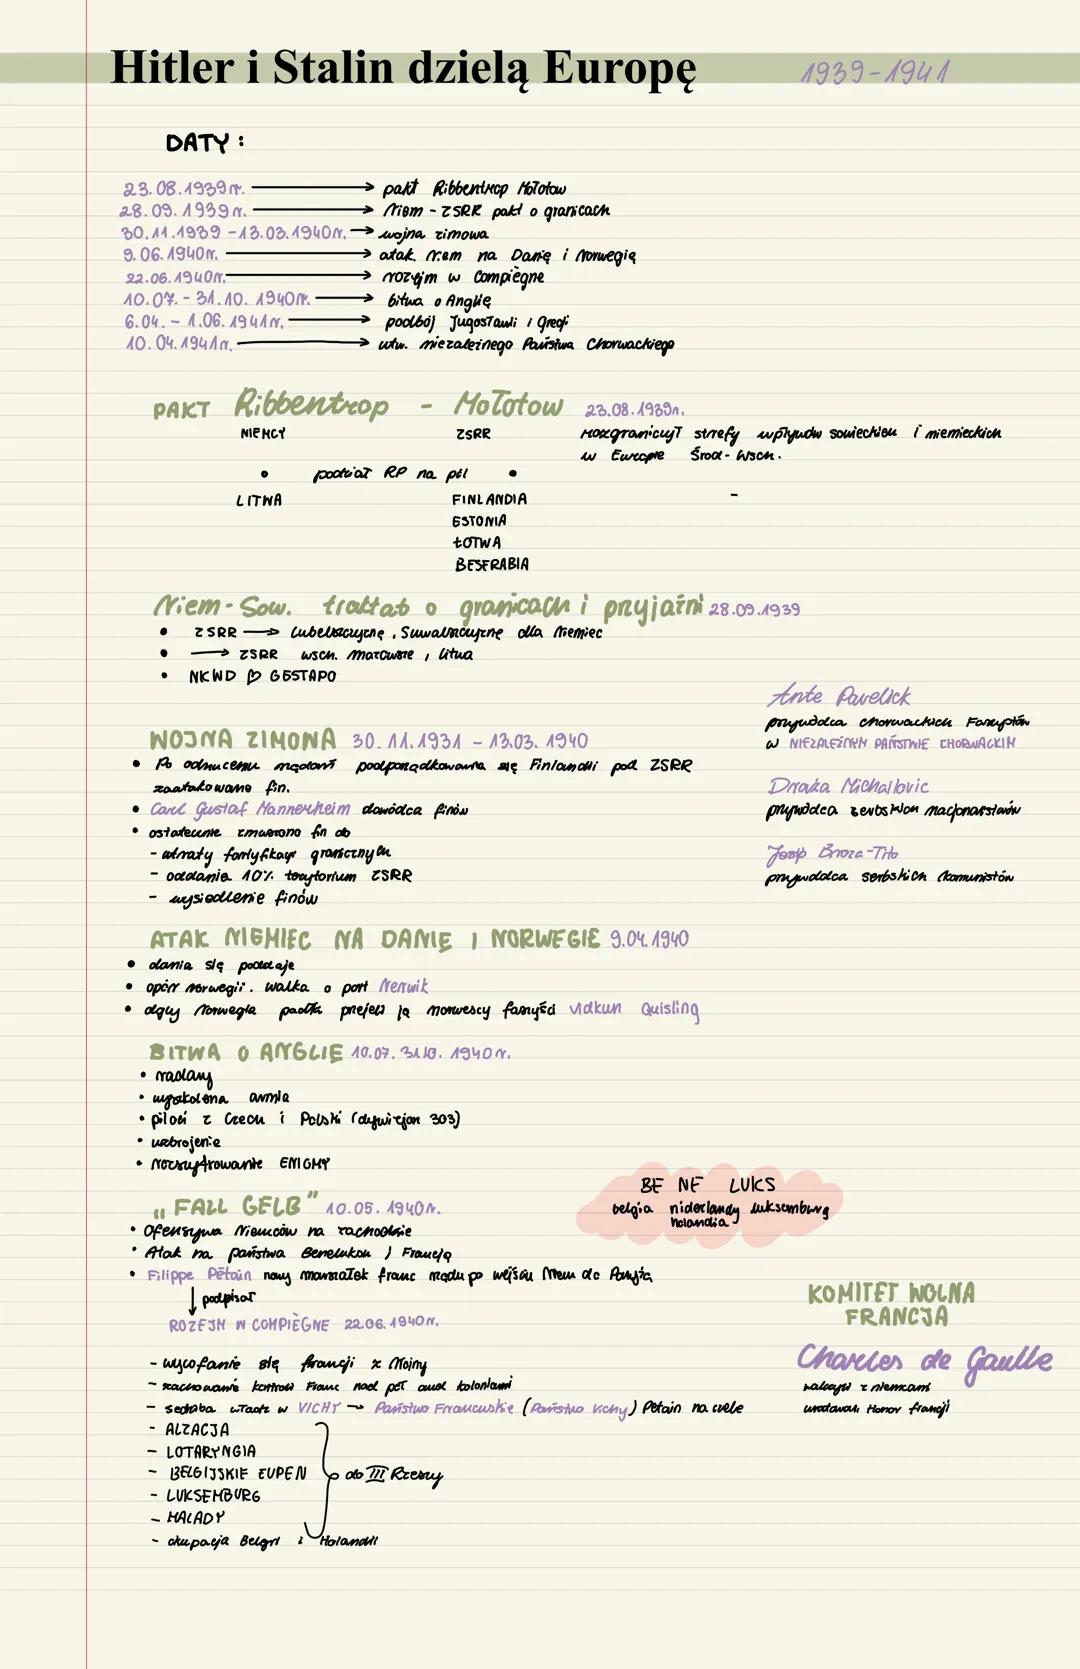 Hitler i Stalin dzielą Europę 1939-1941
DATY:
23.08.1939r. → pakt Ribbentrop Mołotow
28.09.1939r. → Niem - ZSRR pakt o granicach
30.11.1939 - 13.03.1940r. → wojna zimowa
9.06.1940r. → atak niem na Danię i Norwegię
22.06.1940r. → rozejm w Compiègne
10.07. - 31.10. 1940r. → bitwa o Anglię
6.04. - 1.06.1941r. → podbój Jugosławi i Grecji
10.04.1941r. → utw. niezależnego Państwa Chorwackiego
PAKT Ribbentrop - Mołotow 23.08.1939r.
NIEMCY ZSRR rozgraniczył strefy wpływów sowieckich i niemieckich
w Europie Środ-Wsch.
• podział RP na pół •
LITWA FINLANDIA -
ESTONIA
ŁOTWA
BESERABIA
Niem-Sow. traktat o granicach i przyjaźni 28.09.1939
• ZSRR → Lubelszczyznę, Suwalszczyznę dla Niemiec
• → ZSRR wsch. Mazowsze, Litwa
• NKWD ♡ GESTAPO
Ante Pavelick
przywódca chorwackich Faszystów
W NIEZALEŻNYM PAŃSTWIE CHORWACKIM
WOJNA ZIMOWA 30.11.1931 - 13.03.1940
• Po odrzuceniu żądań podporządkowania się Finlandii pod ZSRR
zaatakowano fin.
Draża Michailovic
• Carl Gustaf Mannerheim dowódca finów
przywódca serbskich nacjonalistów
• ostatecznie zmuszono fin do
- utraty fortyfikacji granicznych
Josip Broza-Tito
- oddania 10% terytorium ZSRR
przywódca serbskich komunistów
- wysiedlenie finów
ATAK NIEMIEC NA DANIĘ I NORWEGIE 9.04.1940
• dania się poddaje
• opór norwegii. walka o port Nerwik
• gdy Norwegia padła przejęli ją norwescy faszyści vidkun Quisling
BITWA O ANGLIE 10.07. 31.10. 1940r.
• radary
• wyszkolona armia
• piloci z Czech i Polski (dywizjon 303)
• uzbrojenie
• rozszyfrowanie ENIGMY
BE NE LUKS
belgia niderlandy luksemburg
holandia
„FALL GELB" 10.05.1940r.
• Ofensywa Niemców na zachodzie
• Atak na państwa Beneluksu i Francję
• Filippe Pétain nowy marszałek franc rządu po wejściu Niem do Paryża
↓ podpisał
ROZEJM W COMPIÈGNE 22.06.1940r.
KOMITET WOLNA
FRANCJA
Charles de Gaulle
walczył z niemcami
uratował honor francji
- wycofanie się francji z Wojny
- zachowanie kontroli Franc nad koloniami
- siedziba władz w VICHY → Państwo Francuskie (Państwo Vichy) Pétain na czele
- ALZACJA
- LOTARYNGIA
- BELGIJSKIE EUPEN do III Rzeszy
- LUKSEMBURG
- MALADY
- okupacja Belgii i Holandii